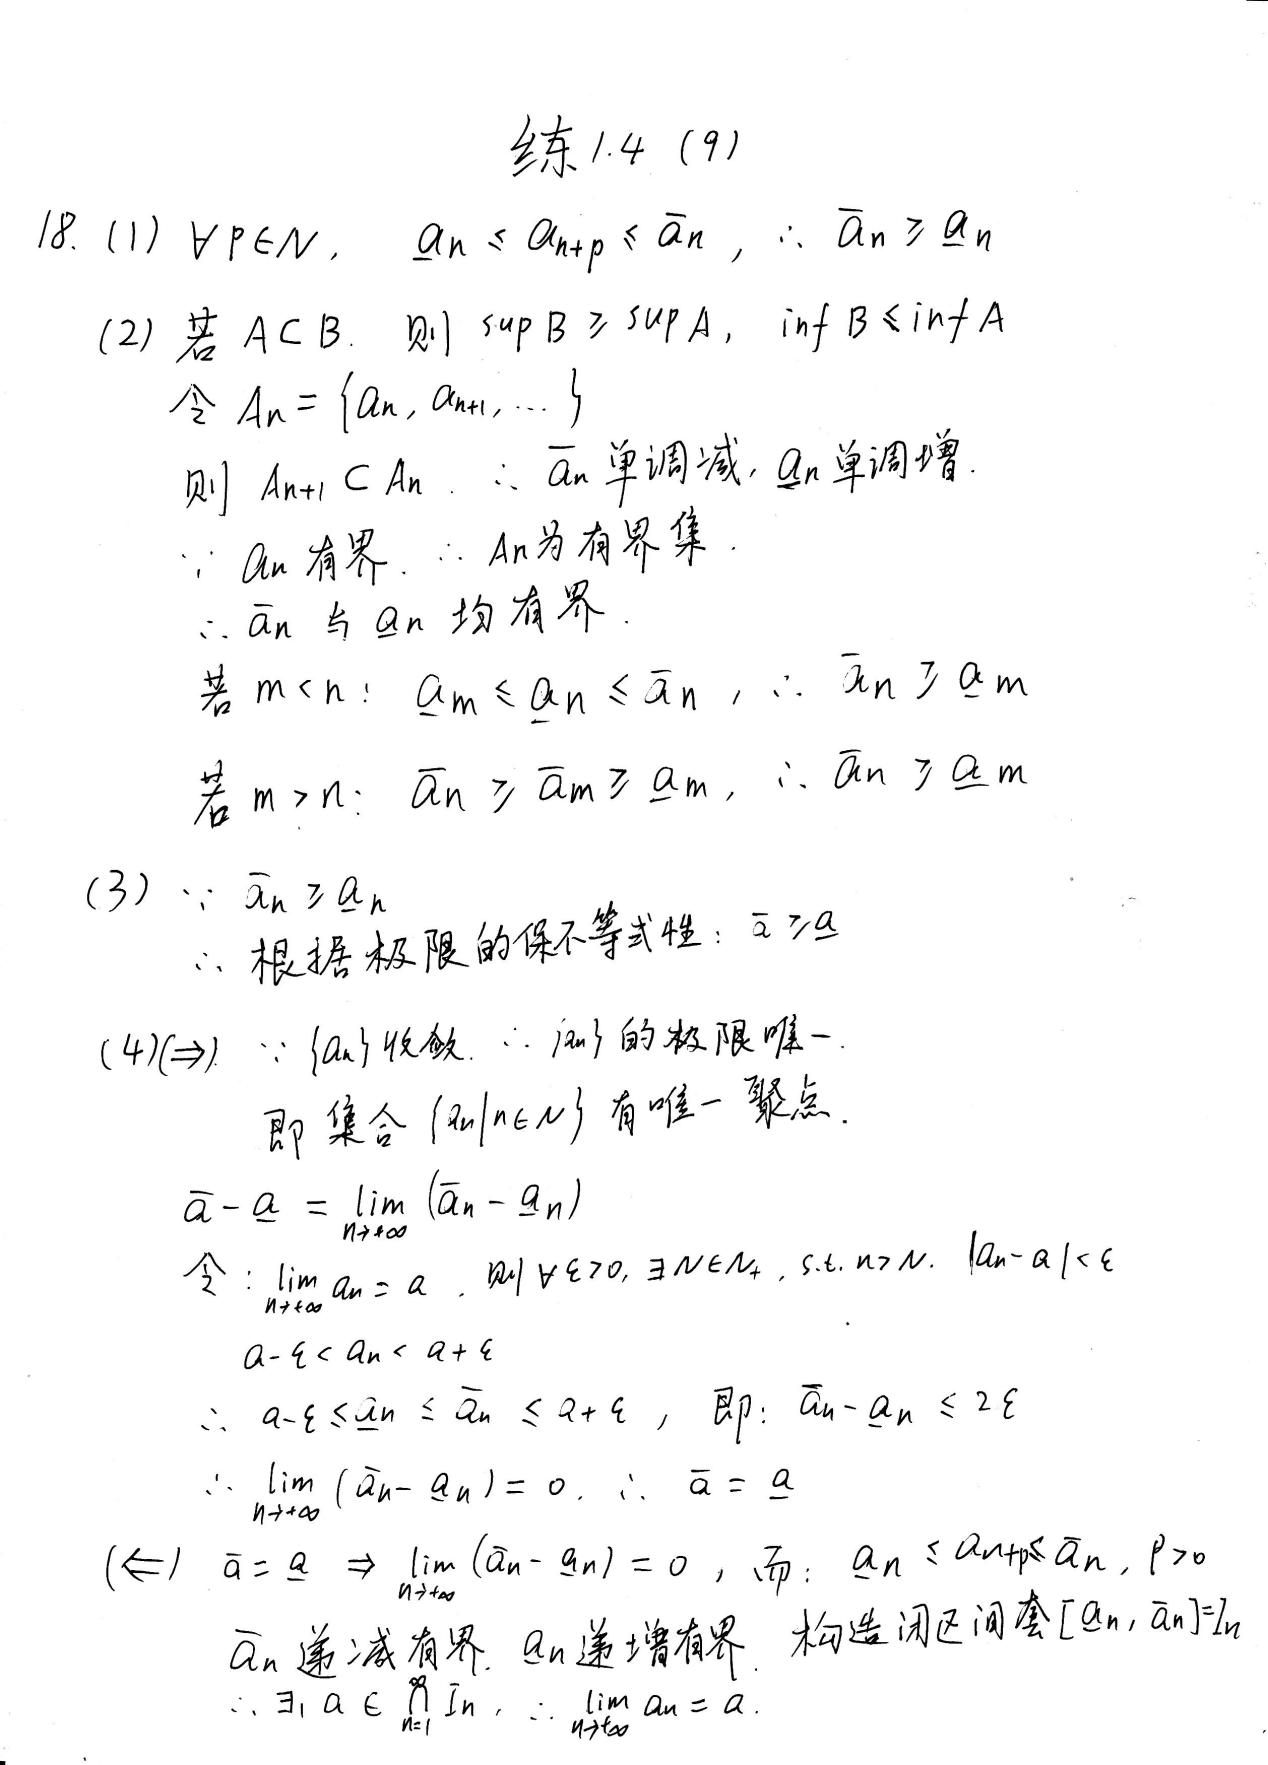 练1.4 (9)
18. (1) ∀P∈N, a̲n ≤ an+p ≤ ān, ∴ ān ≥ a̲n
(2) 若 A⊂B. 则 sup B ≥ sup A, inf B ≤ inf A
令 An = {an, an+1, ...}
则 An+1 ⊂ An. ∴ ān 单调减, a̲n 单调增.
∵ an 有界. ∴ An为有界集.
∴ ān 与 a̲n 均有界.
若 m<n: a̲m ≤ a̲n ≤ ān, ∴ ān ≥ a̲m
若 m>n: ān ≥ ām ≥ a̲m, ∴ ān ≥ a̲m
(3) ∵ ān ≥ a̲n
∴ 根据极限的保不等式性: ā ≥ a̲
(4)(⇒). ∵ {an}收敛. ∴ {an}的极限唯一.
即 集合 {an|n∈N} 有唯一聚点.
ā - a̲ = lim n→+∞ (ān - a̲n)
令: lim n→+∞ an = a. 则∀ε>0, ∃N∈N+, s.t. n>N. |an-a|<ε
a-ε < an < a+ε
∴ a-ε ≤ a̲n ≤ ān ≤ a+ε, 即: ān - a̲n ≤ 2ε
∴ lim n→+∞ (ān - a̲n) = 0. ∴ ā = a̲
(⇐) ā = a̲ ⇒ lim n→+∞ (ān - a̲n) = 0, 而: a̲n ≤ an+p ≤ ān, P>0
ān 递减有界. a̲n 递增有界. 构造闭区间套[a̲n, ān]=In
∴ ∃₁ a ∈ ∞∩n=1 In, ∴ lim n→+∞ an = a.